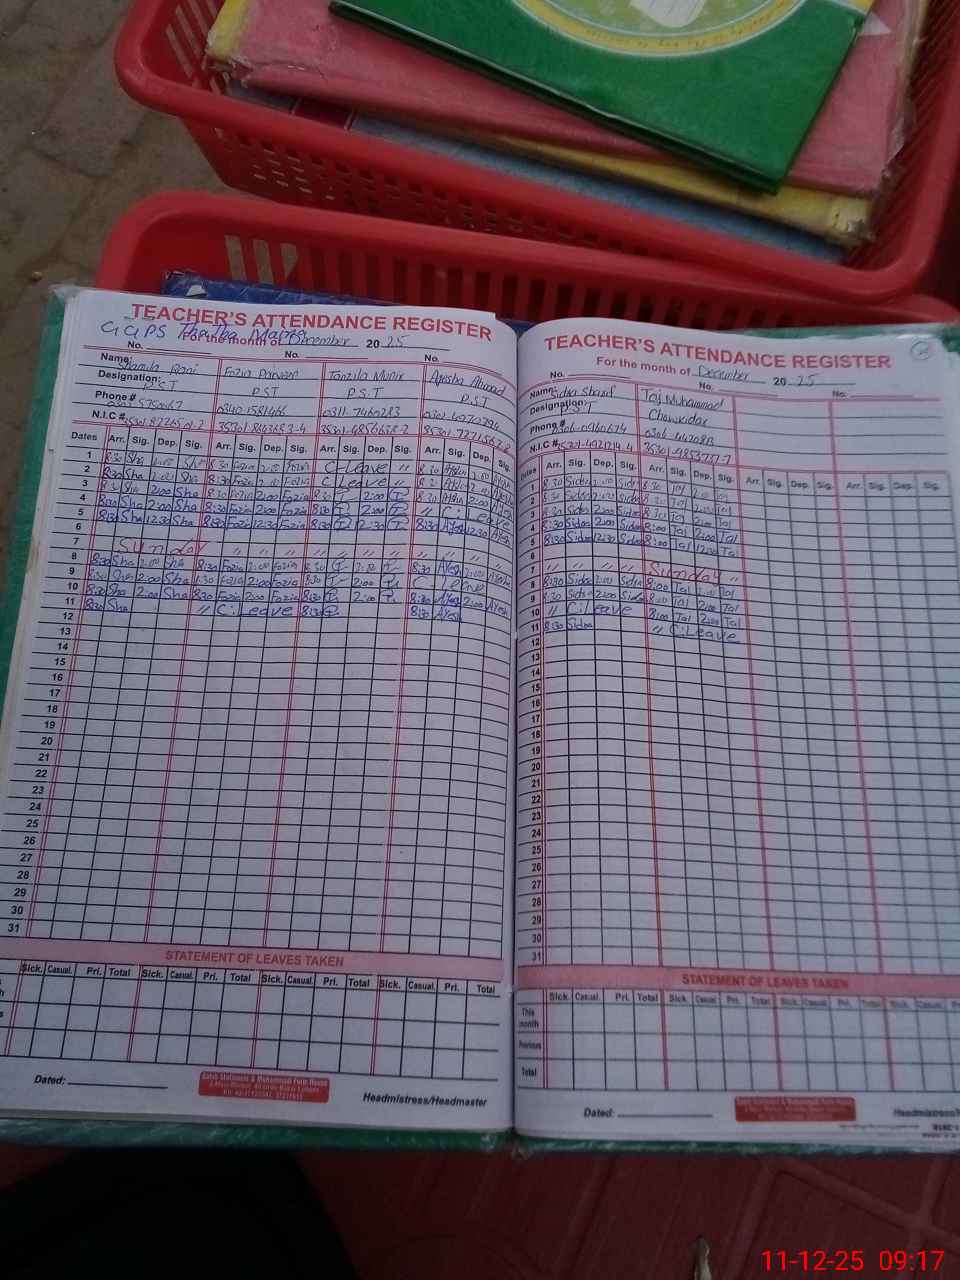 TEACHER'S ATTENDANCE REGISTER
GGPS
For the month of December 20 25
No. No. No.
Name: Shamila Rani Fozia Parveen Tanzila Munir Ayesha Ahmad
Designation: P.S.T P.S.T P.S.T P.S.T
Phone #
N.I.C #
Dates Arr. Sig. Dep. Sig. Arr. Sig. Dep. Sig. Arr. Sig. Dep. Sig. Arr. Sig. Dep. Sig.
1 8:30 Sha 2:00 Sha 8:30 Fozia 2:00 Fozia C. Leave 〃 8:30 2:00
2 8:30 Sha 2:00 Sha 8:30 Fozia 2:00 Fozia C Leave 〃 8:30 2:00
3 8:30 Sha 2:00 Sha 8:30 Fozia 2:00 Fozia 8:30 T 2:00 T 8:30 2:00
4 8:30 Sha 2:00 Sha 8:30 Fozia 2:00 Fozia 8:30 T 2:00 T 〃 C. Leave
5 8:30 Sha 12:30 Sha 8:30 Fozia 12:30 Fozia 8:30 T 12:30 T 8:30 Ayesh 12:30 Ayesh
6
7 Sunday 〃 〃 〃 〃 〃 〃 〃 〃 〃 〃
8 8:30 Sha 2:00 Sha 8:30 Fozia 2:00 Fozia 8:30 T 2:00 T 8:30 Ayesh 2:00
9 8:30 Sha 2:00 Sha 8:30 Fozia 2:00 Fozia 8:30 T 2:00 T C Leave
10 8:30 Sha 2:00 Sha 8:30 Fozia 2:00 Fozia 8:30 T 2:00 T 8:30 Ayesh 2:00 Ayesh
11 8:30 Sha 〃 C. Leave 8:30 T 8:30 Ayesh
12
13
14
15
16
17
18
19
20
21
22
23
24
25
26
27
28
29
30
31
STATEMENT OF LEAVES TAKEN
Sick. Casual. Pri. Total Sick. Casual. Pri. Total Sick. Casual. Pri. Total Sick. Casual. Pri. Total
Dated:
Headmistress/Headmaster
TEACHER'S ATTENDANCE REGISTER
For the month of December 20 25
No. No. No.
Name: Sidra Sharif Taj Muhammad
Designation: P.S.T Chowkidar
Phone #
N.I.C #
Dates Arr. Sig. Dep. Sig. Arr. Sig. Dep. Sig. Arr. Sig. Dep. Sig. Arr. Sig. Dep. Sig.
1 8:30 Sidra 2:00 Sidra 8:30 Taj 2:00 Taj
2 8:30 Sidra 2:00 Sidra 8:30 Taj 2:00 Taj
3 8:30 Sidra 2:00 Sidra 8:30 Taj 2:00 Taj
4 8:30 Sidra 2:00 Sidra 8:00 Taj 2:00 Taj
5 8:30 Sidra 12:30 Sidra 8:00 Taj 12:30 Taj
6
7 〃 〃 〃 〃 Sunday 〃
8 8:30 Sidra 2:00 Sidra 8:00 Taj 2:00 Taj
9 8:30 Sidra 2:00 Sidra 8:00 Taj 2:00 Taj
10 〃 C. Leave 8:00 Taj 2:00 Taj
11 8:30 Sidra 〃 C. Leave
12
13
14
15
16
17
18
19
20
21
22
23
24
25
26
27
28
29
30
31
STATEMENT OF LEAVES TAKEN
Sick. Casual. Pri. Total Sick. Casual. Pri. Total Sick. Casual. Pri. Total Sick. Casual. Pri.
This month
Previous
Total
Dated:
11-12-25 09:17